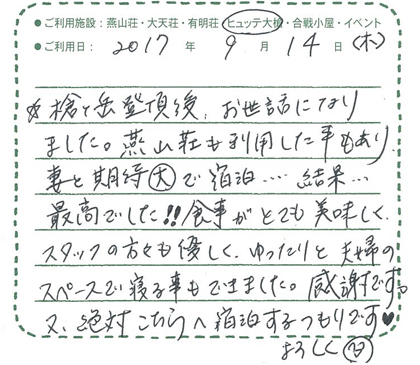 ●ご利用施設：燕山荘・大天荘・有明荘・ヒュッテ大槍・合戦小屋・イベント
●ご利用日：2017年9月14日(木)
☆槍ヶ岳登頂後、お世話になり
ました。燕山荘も利用した事もあり、
妻と期待大で宿泊… 結果…
最高でした!!食事がとても美味しく、
スタッフの方々も優しく、ゆったりと夫婦の
スペースで寝る事もできました。感謝です。
又、絶対こちらへ宿泊するつもりです♥